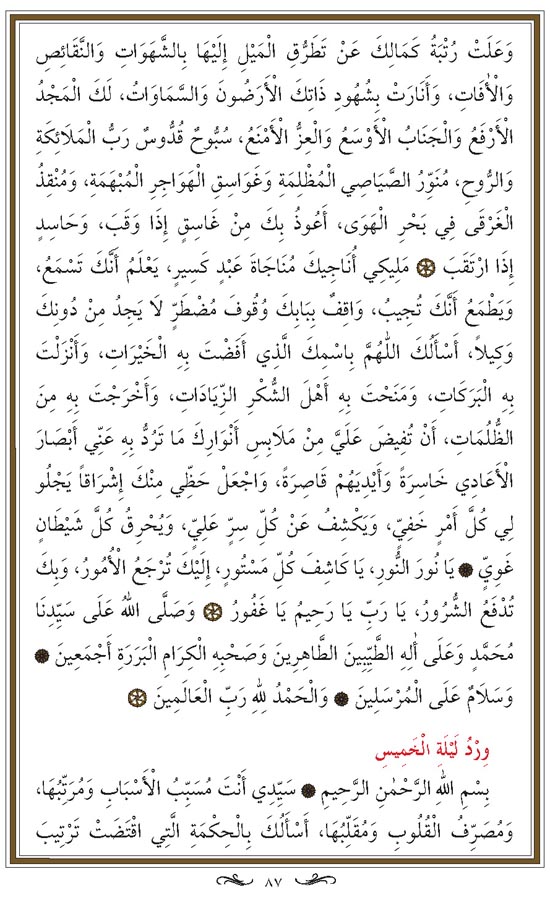 وَعَلَتْ رُتْبَةُ كَمَالِكَ عَنْ تَطَرُّقِ الْمَيْلِ إِلَيْهَا بِالشَّهَوَاتِ وَالنَّقَائِصِ
وَالْاٰفَاتِ، وَأَنَارَتْ بِشُهُودِ ذَاتِكَ الْأَرَضُونَ وَالسَّمَاوَاتُ، لَكَ الْمَجْدُ
الْأَرْفَعُ وَالْجَنَابُ الْأَوْسَعُ وَالْعِزُّ الْأَمْنَعُ، سُبُّوحٌ قُدُّوسٌ رَبُّ الْمَلَائِكَةِ
وَالرُّوحِ، مُنَوِّرُ الصَّيَاصِي الْمُظْلِمَةِ وَغَوَاسِقِ الْهَوَاجِرِ الْمُبْهَمَةِ، وَمُنْقِذُ
الْغَرْقَى فِي بَحْرِ الْهَوَى، أَعُوذُ بِكَ مِنْ غَاسِقٍ إِذَا وَقَبَ، وَحَاسِدٍ
إِذَا ارْتَقَبَ ۞ مَلِيكِي أُنَاجِيكَ مُنَاجَاةَ عَبْدٍ كَسِيرٍ، يَعْلَمُ أَنَّكَ تَسْمَعُ،
وَيَطْمَعُ أَنَّكَ تُجِيبُ، وَاقِفٌ بِبَابِكَ وُقُوفَ مُضْطَرٍّ لَا يَجِدُ مِنْ دُونِكَ
وَكِيلاً، أَسْأَلُكَ اللّٰهُمَّ بِاسْمِكَ الَّذِي أَفَضْتَ بِهِ الْخَيْرَاتِ، وَأَنْزَلْتَ
بِهِ الْبَرَكَاتِ، وَمَنَحْتَ بِهِ أَهْلَ الشُّكْرِ الزِّيَادَاتِ، وَأَخْرَجْتَ بِهِ مِنَ
الظُّلُمَاتِ، أَنْ تُفِيضَ عَلَيَّ مِنْ مَلَابِسِ أَنْوَارِكَ مَا تَرُدُّ بِهِ عَنِّي أَبْصَارَ
الْأَعَادِي خَاسِرَةً وَأَيْدِيَهُمْ قَاصِرَةً، وَاجْعَلْ حَظِّي مِنْكَ إِشْرَاقاً يَجْلُو
لِي كُلَّ أَمْرٍ خَفِيٍّ، وَيَكْشِفُ عَنْ كُلِّ سِرٍّ عَلِيٍّ، وَيُحْرِقُ كُلَّ شَيْطَانٍ
غَوِيٍّ ۞ يَا نُورَ النُّورِ، يَا كَاشِفَ كُلِّ مَسْتُورٍ، إِلَيْكَ تُرْجَعُ الْأُمُورُ، وَبِكَ
تُدْفَعُ الشُّرُورُ، يَا رَبِّ يَا رَحِيمُ يَا غَفُورُ ۞ وَصَلَّى اللّٰهُ عَلَى سَيِّدِنَا
مُحَمَّدٍ وَعَلَى اٰلِهِ الطَّيِّبِينَ الطَّاهِرِينَ وَصَحْبِهِ الْكِرَامِ الْبَرَرَةِ أَجْمَعِينَ ۞
وَسَلَامٌ عَلَى الْمُرْسَلِينَ ۞ وَالْحَمْدُ لِلّٰهِ رَبِّ الْعَالَمِينَ ۞
وِرْدُ لَيْلَةِ الْخَمِيسِ
بِسْمِ اللّٰهِ الرَّحْمٰنِ الرَّحِيمِ ۞ سَيِّدِي أَنْتَ مُسَبِّبُ الْأَسْبَابِ وَمُرَتِّبُهَا،
وَمُصَرِّفُ الْقُلُوبِ وَمُقَلِّبُهَا، أَسْأَلُكَ بِالْحِكْمَةِ الَّتِي اقْتَضَتْ تَرْتِيبَ
٨٧